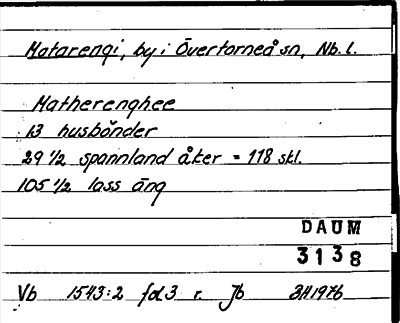 Matarengi, by i Övertorneå sn, Nb. l.
Matherenghee
13 husbönder
29 1/2 spannland åker = 118 skl.
105 1/2 lass äng
DAUM
3138
Vb 1543:2 fol 3 r. Jb